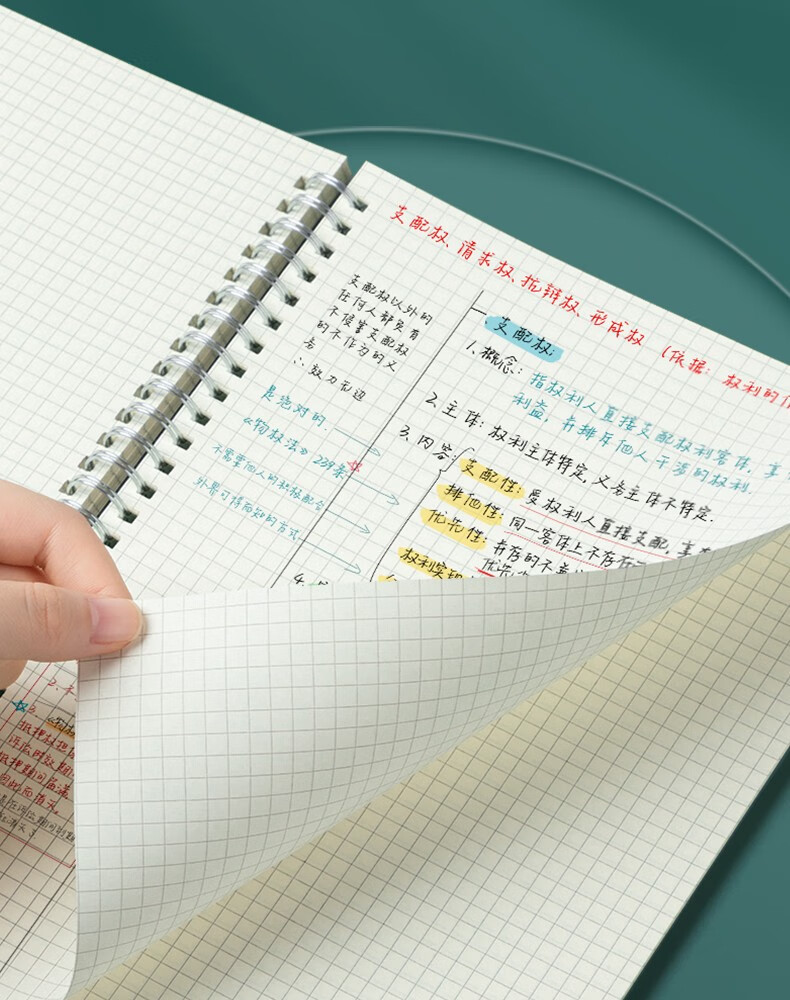 支配权、请求权、抗辩权、形成权 (依据: 权利的作
支配权以外的
任何人都负有
不侵害支配权
的不作为的义
务
∴效力无边
是绝对的.
《物权法》239条
不需要他人的积极配合
外界可得而知的方式
一、支配权:
1.概念: 指权利人直接支配权利客体, 享
利益, 并排斥他人干涉的权利.
2.主体: 权利主体特定, 义务主体不特定.
3.内容:
支配性: 受权利人直接支配, 享
排他性: 同一客体上不存在
优先性: 并存的不
优先
权利实现
4.
2.
抵押权担
诉讼时效期
抵押期间届满